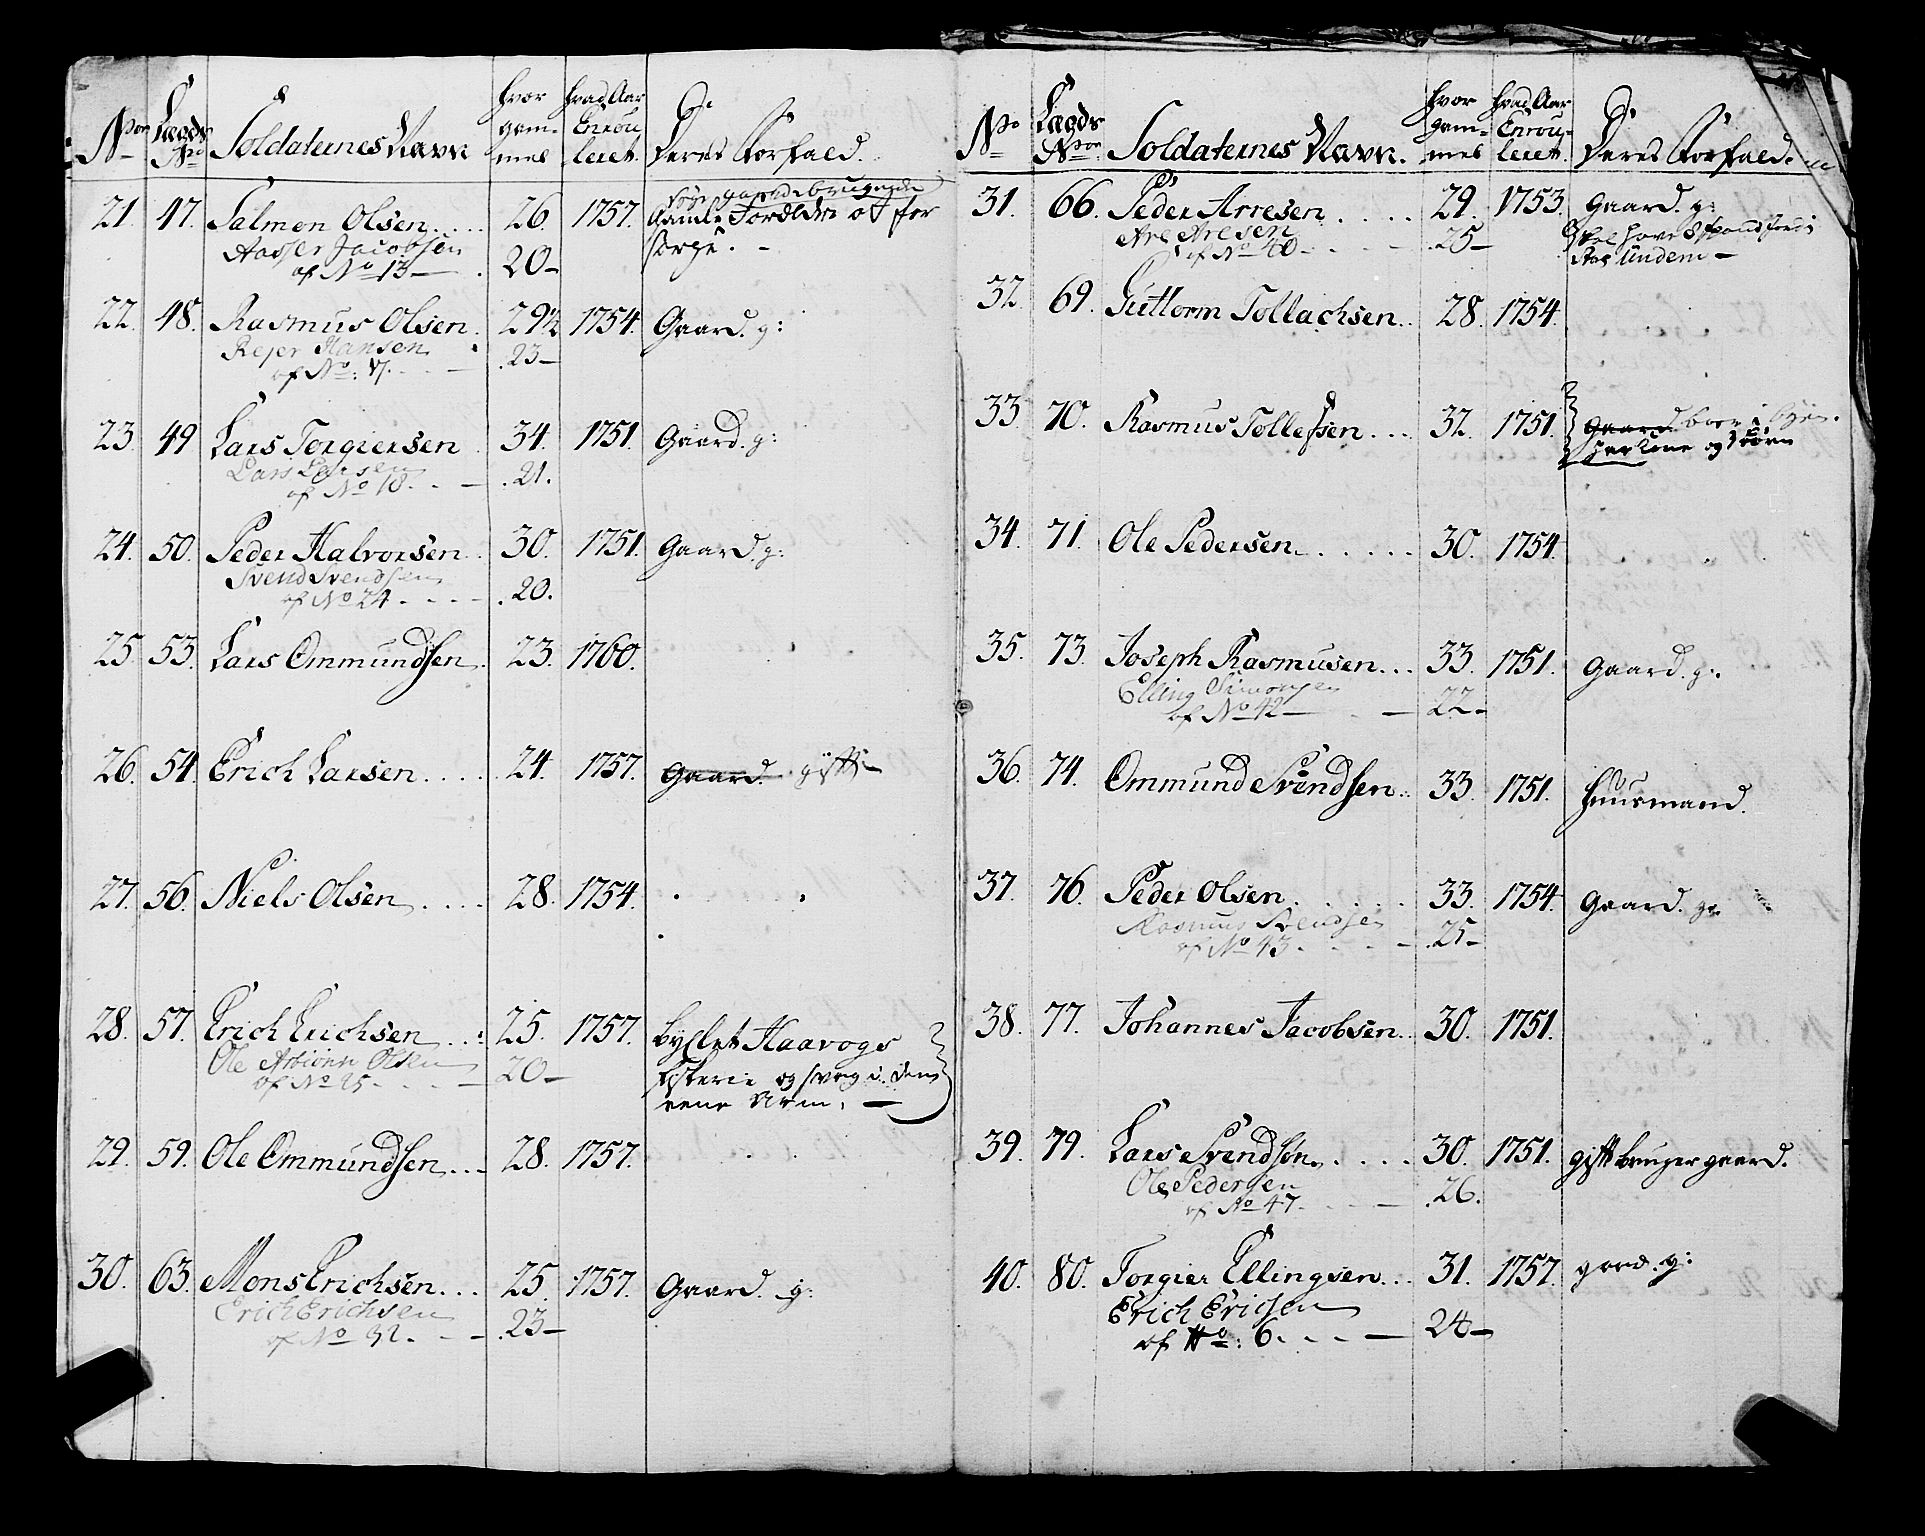 No Lægds No Soldaternes Navn hvor gammel hvad Aar Enroulleret Deres Forfald.
21. 47. Salmon Olsen..... 26. 1757. gaardebrugende
gamle Foreldre at for
Aasser Jacobsen sørge. -
af No 13 — 20-
22. 48. Rasmus Olsen. 29½ 1754. Gaard. g:
Rejer Hansen .23-
af No: 17. - - -
23 49 Lars Torgiersen 34. 1751. Gaard. g:
Lars Larsen .21.
af No 18. - -
24. 50. Peder Halvorsen. 30. 1751. Gaard g:
Svend Svendsen
af No 24 - - - - .20.
25. 53. Lars Ommundsen. 23. 1760.
26. 54. Erich Larsen..... 24. 1757. Gaard. gift
27. 56. Niels Olsen.... 28. 1754.
28. 57. Erich Erichsen... 25. 1757. Haavogs
Ole Asbiørn Olsen 20- og svag i den
af No 25 - - - - eene Arm. —
29. 59. Ole Ommundsen... 28. 1757.
30. 63. Mons Erichsen... 25. 1757. Gaard. g:
Erich Erichsen
af No 32. - - - .23-
No Lægds No Soldaternes Navn. hvor gammel hvad Aar Enroulleret. Deres Forfald.
31. 66. Peder Arresen..... 29. 1753. Gaard. g:
Are Aresen .25- skal have
af No 40 - - - -
32. 69. Guttorm Tollachsen.. 28. 1754.
33 70. Rasmus Tollefsen... 32. 1751. Gaard boer i byen.
har Kone og Børn
34. 71. Ole Pedersen...... 30. 1754.
35. 73. Joseph Rasmusen... 33. 1751. Gaard. g:.
Elling Simonsen
af No 42 — - — 22-
36. 74. Ommund Svendsen.. 33. 1751. Huusmand.
37. 76. Peder Olsen...... 33. 1754. Gaard. g:
Rasmus Svendsen .25-
af No 43. - - - -
38. 77. Johannes Jacobsen.. 30. 1751.
39. 79. Lars Svendsøn..... 30. 1751. gift bruger gaard.
Ole Pedersen .26.
af No 47. - - -
40. 80. Torgier Ellingsen... 31. 1757. gaard. g:
Erich Ericsen
af No: 6. - - — 24-